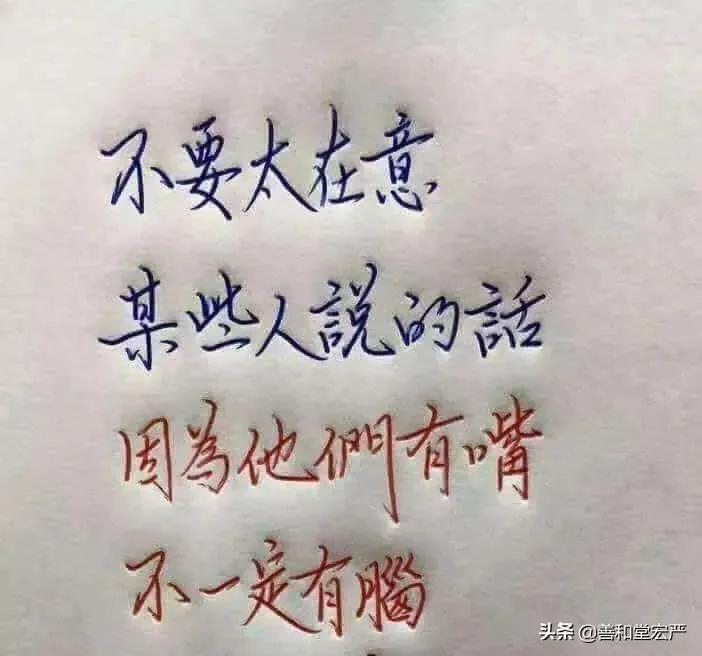 不要太在意
某些人說的話
因為他們有嘴
不一定有腦
头条 @善和堂宏严